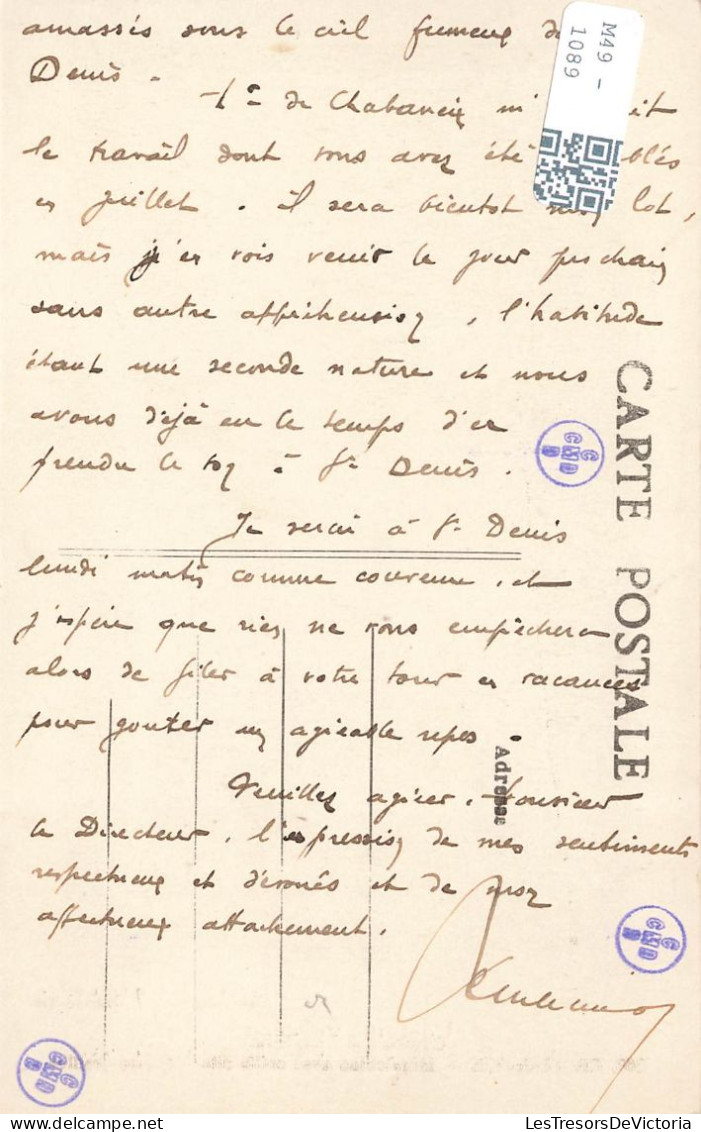 amassés sous le ciel fumeux de
Denis.
de Chabaneix
le travail dont vous avez été
en juillet. il sera bientôt mon lot,
mais j'en vois venir le jour prochain
sans autre appréhension, l'habitude
étant une seconde nature et nous
avons déjà eu le temps d'en
prendre le à St Denis.
Je serai à St Denis
lundi matin comme convenu, et
j'espère que rien ne vous empêchera
alors de filer à votre tour en vacances
pour gouter un agréable repos.
Veuillez agréer, Monsieur
le Directeur, l'expression de mes sentiments
respectueux et dévoués et de mon
affectueux attachement.
M49 -
1089
CARTE POSTALE
Adresse
LesTresorsDeVictoria.com